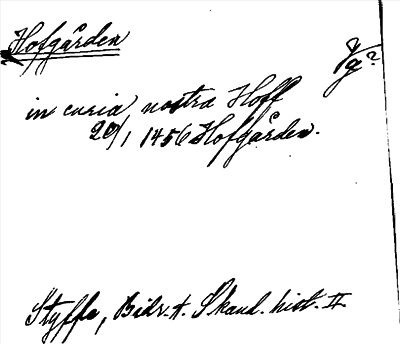 Hofgården
Vg?
in curia nostra Hoff
20/1 1456 Hofgården.
Styffe, Bidr. t. Skand. hist. II.